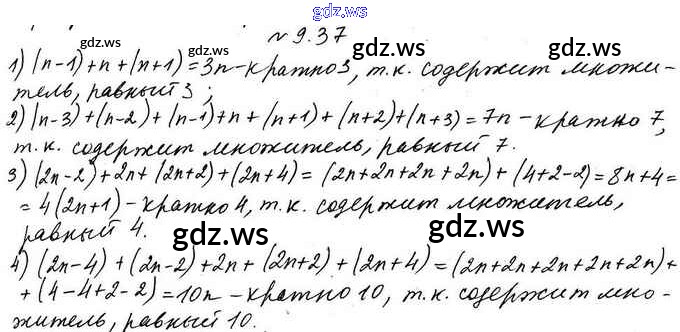 gdz.ws
№9.37
1) (n-1)+n+(n+1)=3n-кратно3, т.к. содержит множи-
тель, равный 3;
2) (n-3)+(n-2)+(n-1)+n+(n+1)+(n+2)+(n+3)=7n-кратно 7,
т.к. содержит множитель, равный 7.
3) (2n-2)+2n+(2n+2)+(2n+4)=(2n+2n+2n+2n)+(4+2-2)=8n+4=
=4(2n+1)-кратно 4, т.к. содержит множитель,
равный 4.
4) (2n-4)+(2n-2)+2n+(2n+2)+(2n+4)=(2n+2n+2n+2n+2n)+
+(4-4+2-2)=10n-кратно 10, т.к. содержит мно-
житель, равный 10.
gdz.ws
gdz.ws
gdz.ws
gdz.ws
gdz.ws
gdz.ws
gdz.ws
gdz.ws